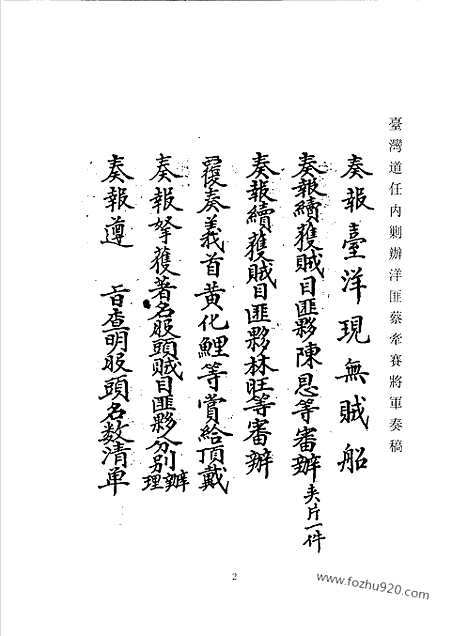 臺灣道任內剿辦洋匪蔡牽賽將軍奏稿
奏報臺洋現無賊船
奏報續獲賊目匪夥陳恩等審辦夾片一件
奏報續獲賊目匪夥林旺等審辦
覆奏義首黃化鯉等賞給頂戴
奏報拏獲著名股頭賊目匪夥分別辦理
奏報遵 旨查明股頭名數清單
2
www.fozhu920.com